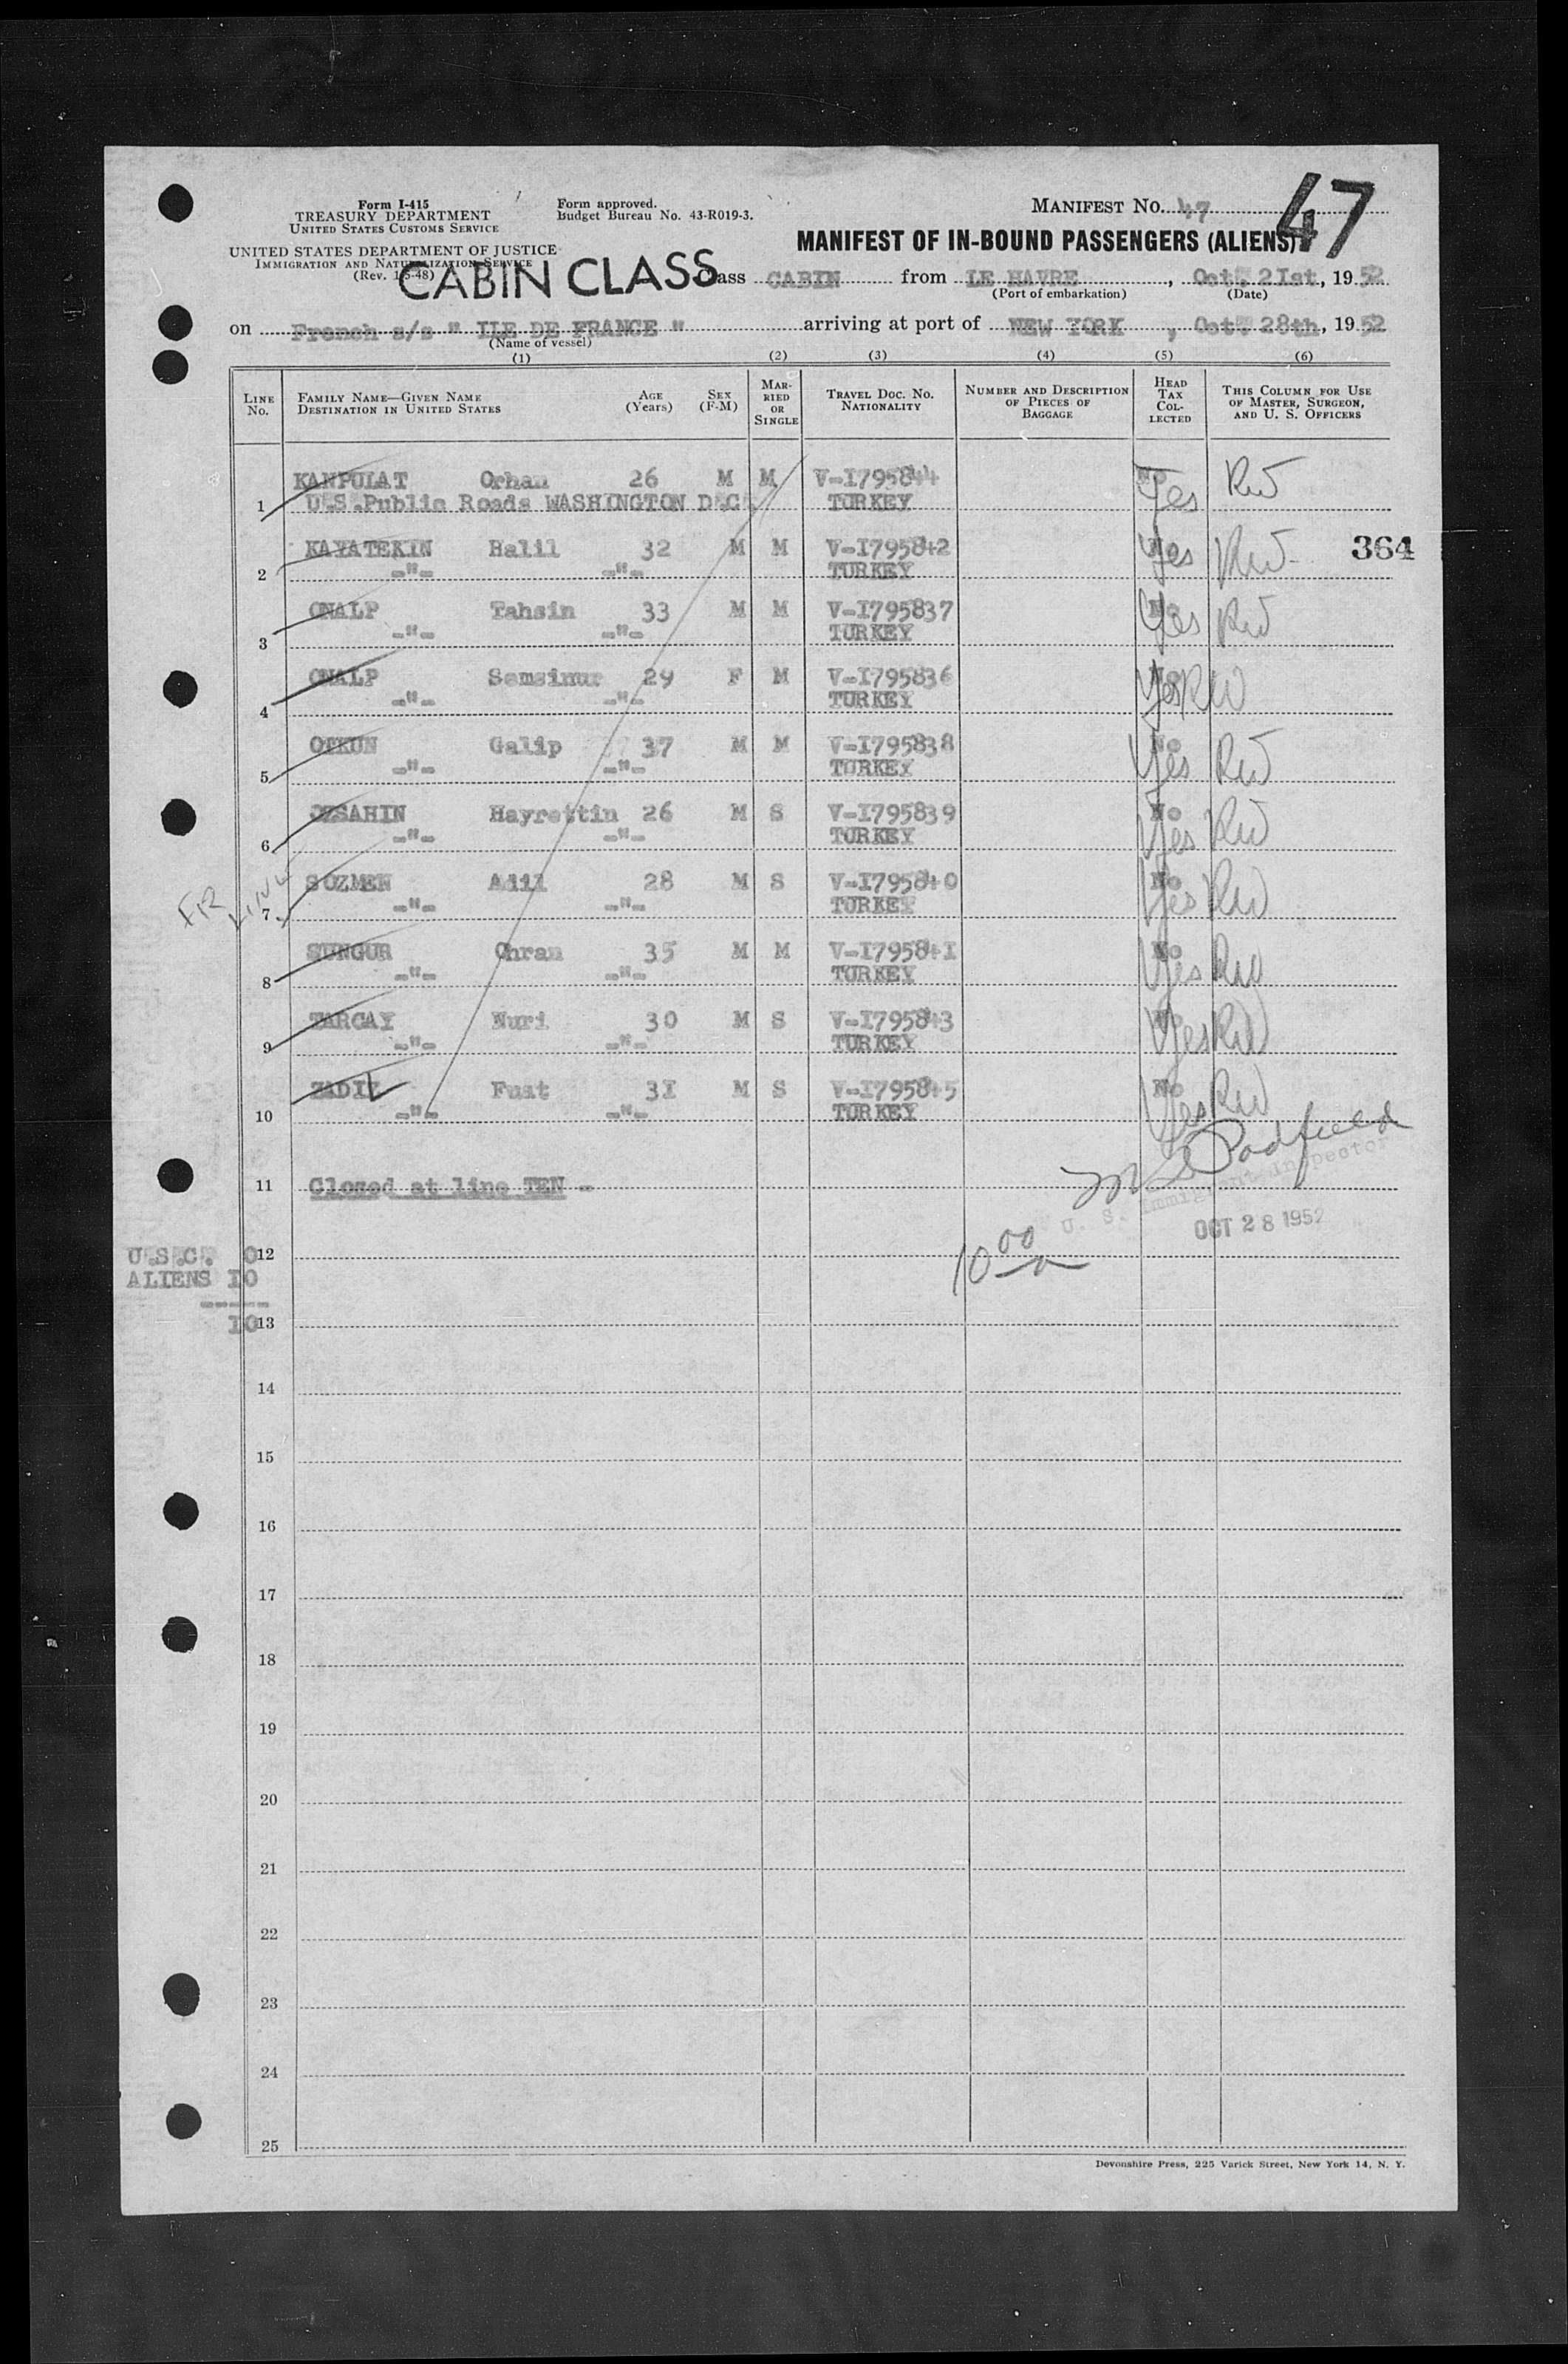 Form I-415
TREASURY DEPARTMENT
UNITED STATES CUSTOMS SERVICE
UNITED STATES DEPARTMENT OF JUSTICE
IMMIGRATION AND NATURALIZATION SERVICE
(Rev. 1-5-48)
Form approved.
Budget Bureau No. 43-R019-3.
MANIFEST No. 47
47
MANIFEST OF IN-BOUND PASSENGERS (ALIENS)
CABIN CLASS
Class CABIN from LE HAVRE, Oct. 2Ist, 1952
(Port of embarkation) (Date)
on French s/s " ILE DE FRANCE " arriving at port of NEW YORK , Oct. 28th, 1952
(Name of vessel)
(1) (2) (3) (4) (5) (6)
LINE No. FAMILY NAME—GIVEN NAME DESTINATION IN UNITED STATES AGE (Years) SEX (F-M) MARRIED OR SINGLE TRAVEL DOC. NO. NATIONALITY NUMBER AND DESCRIPTION OF PIECES OF BAGGAGE HEAD TAX COLLECTED THIS COLUMN FOR USE OF MASTER, SURGEON, AND U. S. OFFICERS
KANPULAT Orhan 26 M M V-I795844 No Yes RW
1 U.S.Public Roads WASHINGTON D.C. TURKEY
KAYATEKIN Halil 32 M M V-I795842 No Yes RW 364
2 -"- -"- TURKEY
ONALP Tahsin 33 M M V-I795837 No Yes RW
3 -"- -"- TURKEY
ONALP Semsinur 29 F M V-I795836 No Yes RW
4 -"- -"- TURKEY
OTKUN Galip 37 M M V-I795838 No Yes RW
5 -"- -"- TURKEY
OZSAHIN Hayrettin 26 M S V-I795839 No Yes RW
6 -"- -"- TURKEY
SOZMEN Adil 28 M S V-I795840 No Yes RW
FR LINE
7 -"- -"- TURKEY
SUNGUR Ohran 35 M M V-I79584I No Yes RW
8 -"- -"- TURKEY
TARCAY Nuri 30 M S V-I795843 No Yes RW
9 -"- -"- TURKEY
ZADIL Fuat 3I M S V-I795845 No Yes RW
10 -"- -"- TURKEY
11 Closed at line TEN -
Padfield
U. S. Immigrant Inspector
OCT 28 1952
10 00 a
U.S.C. 0
12
ALIENS I0
-----
I0
13
14
15
16
17
18
19
20
21
22
23
24
25
Devonshire Press, 225 Varick Street, New York 14, N. Y.